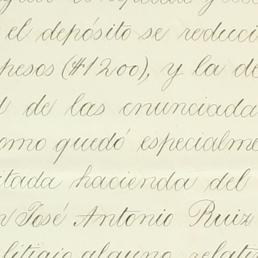 el depósito se reduci
pesos ($1200), y la de
de las enunciada
omo quedó especialme
tada hacienda del
n José Antonio Ruiz
litigio alguno, relati